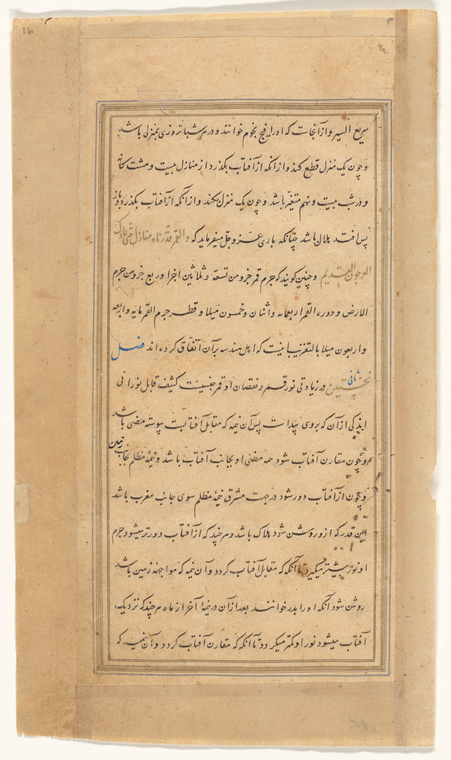 سریع السیر و از آنجاست که او را فیج نجوم خوانند و در هر شبانروزی بمنزلی باشد
و چون یک منزل قطع کند و از آنکه از آفتاب بگذرد از منازل بیست و هشت گانه
و در شب بیست و نهم متغیر باشد و چون یک منزل بکند و از آنکه از آفتاب بگذرد و باز
پس افتد هلال باشد چنانکه باری عز و جل میفرماید که والقمر قدرناه منازل حتی عاد ک
العرجون القدیم و چنین گویند که جرم قمر جزو من تسعة و ثلاثین اجزا و ربع جزو من جرم
الارض و دوره القمر اربعمایه و اثنان و خمسون میلا و قطر جرم القمر مایه و اربعه
و اربعون میلا بالتقریب اینست که اهل هندسه بر آن اتفاق کرده اند فصل
ثانی در زیادتی نور قمر و نقصان او قمر جسمیست کثیف قابل نورانی
از آن که بروی پیداست پس آن نیمه که مقابل آفتابست پیوسته مضی باشد
و چون مقارن آفتاب شود همه مضی او بجانب آفتاب باشد و نیمه مظلم بجانب زمین
و چون از آفتاب دور شود در جهت مشرق نیمه مظلم سوی جانب مغرب باشد
این قدر که از و روشن شود هلال باشد و هر چند که از آفتاب دورتر میشود جرم
او نور بیشتر میگیرد تا آنکه که مقابل آفتاب گردد و آن نیمه که مواجهه زمین باشد
روشن شود آنکه او را بدر خوانند بعد از آن در نیمه آخر از ماه هر چند که نزدیک
آفتاب میشود نور او کمتر میگردد تا آنکه که مقارن آفتاب گردد و آن نیمه که